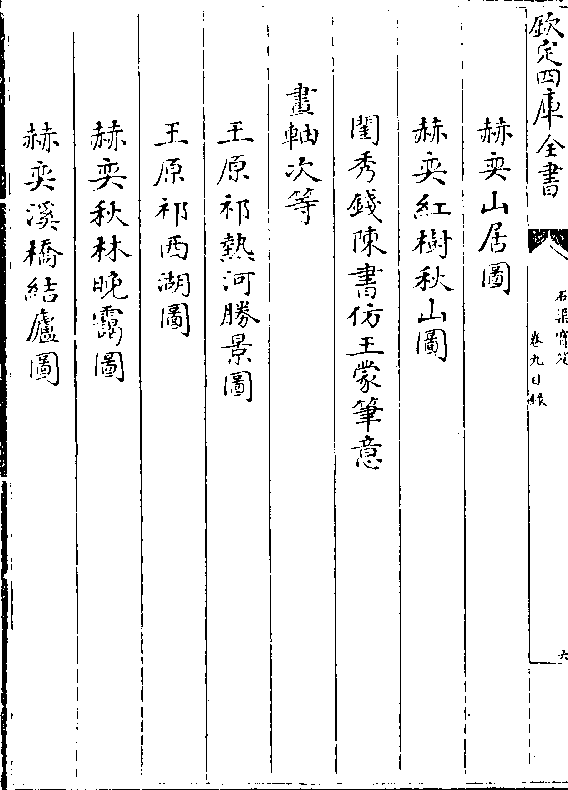 欽定四庫全書
石渠寶笈
卷九目錄
六
赫奕山居圖
赫奕紅樹秋山圖
閨秀錢陳書仿王蒙筆意
畫軸次等
王原祁熱河勝景圖
王原祁西湖圖
赫奕秋林晚靄圖
赫奕溪橋結廬圖